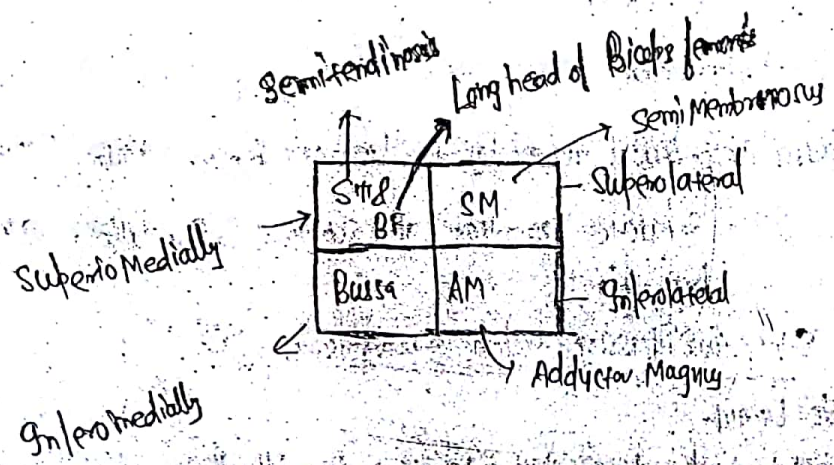 Semitendinosis
Long head of Biceps femoris
Semi Membranosus
ST &
BF
SM
Superolateral
Superio Medially
Bussa
AM
Inferolateral
Adductor Magnus
Inferomedially